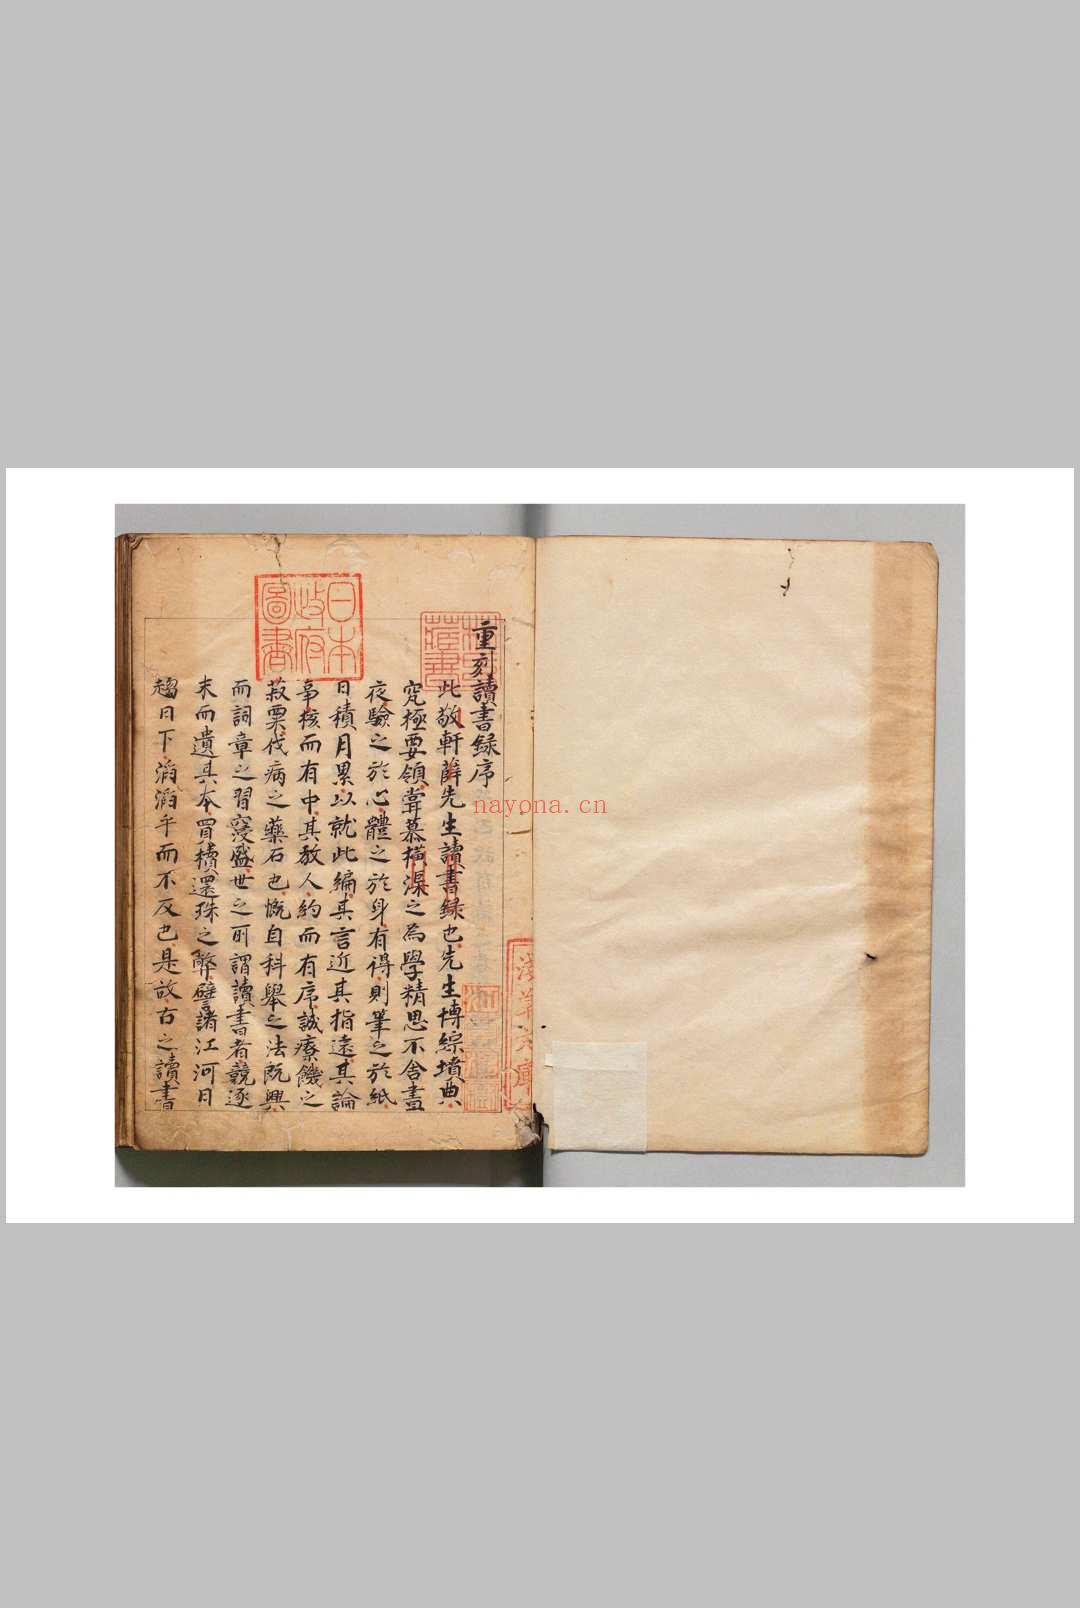 重刻讀書録序
此敬軒薛先生讀書録也先生博綜墳典
究極要領嘗慕横渠之為學精思不舍晝
夜驗之於心體之於身有得則筆之於紙
日積月累以就此編其言近其指遠其論
事核而有中其教人約而有序誠療饑之
菽粟伐病之藥石也慨自科舉之法既興
而詞章之習寖盛世之所謂讀書者競逐
末而遺其本買櫝還珠之弊譬諸江河日
趨日下滔滔乎而不反也是故古之讀書
日本政府圖書
nayona.cn